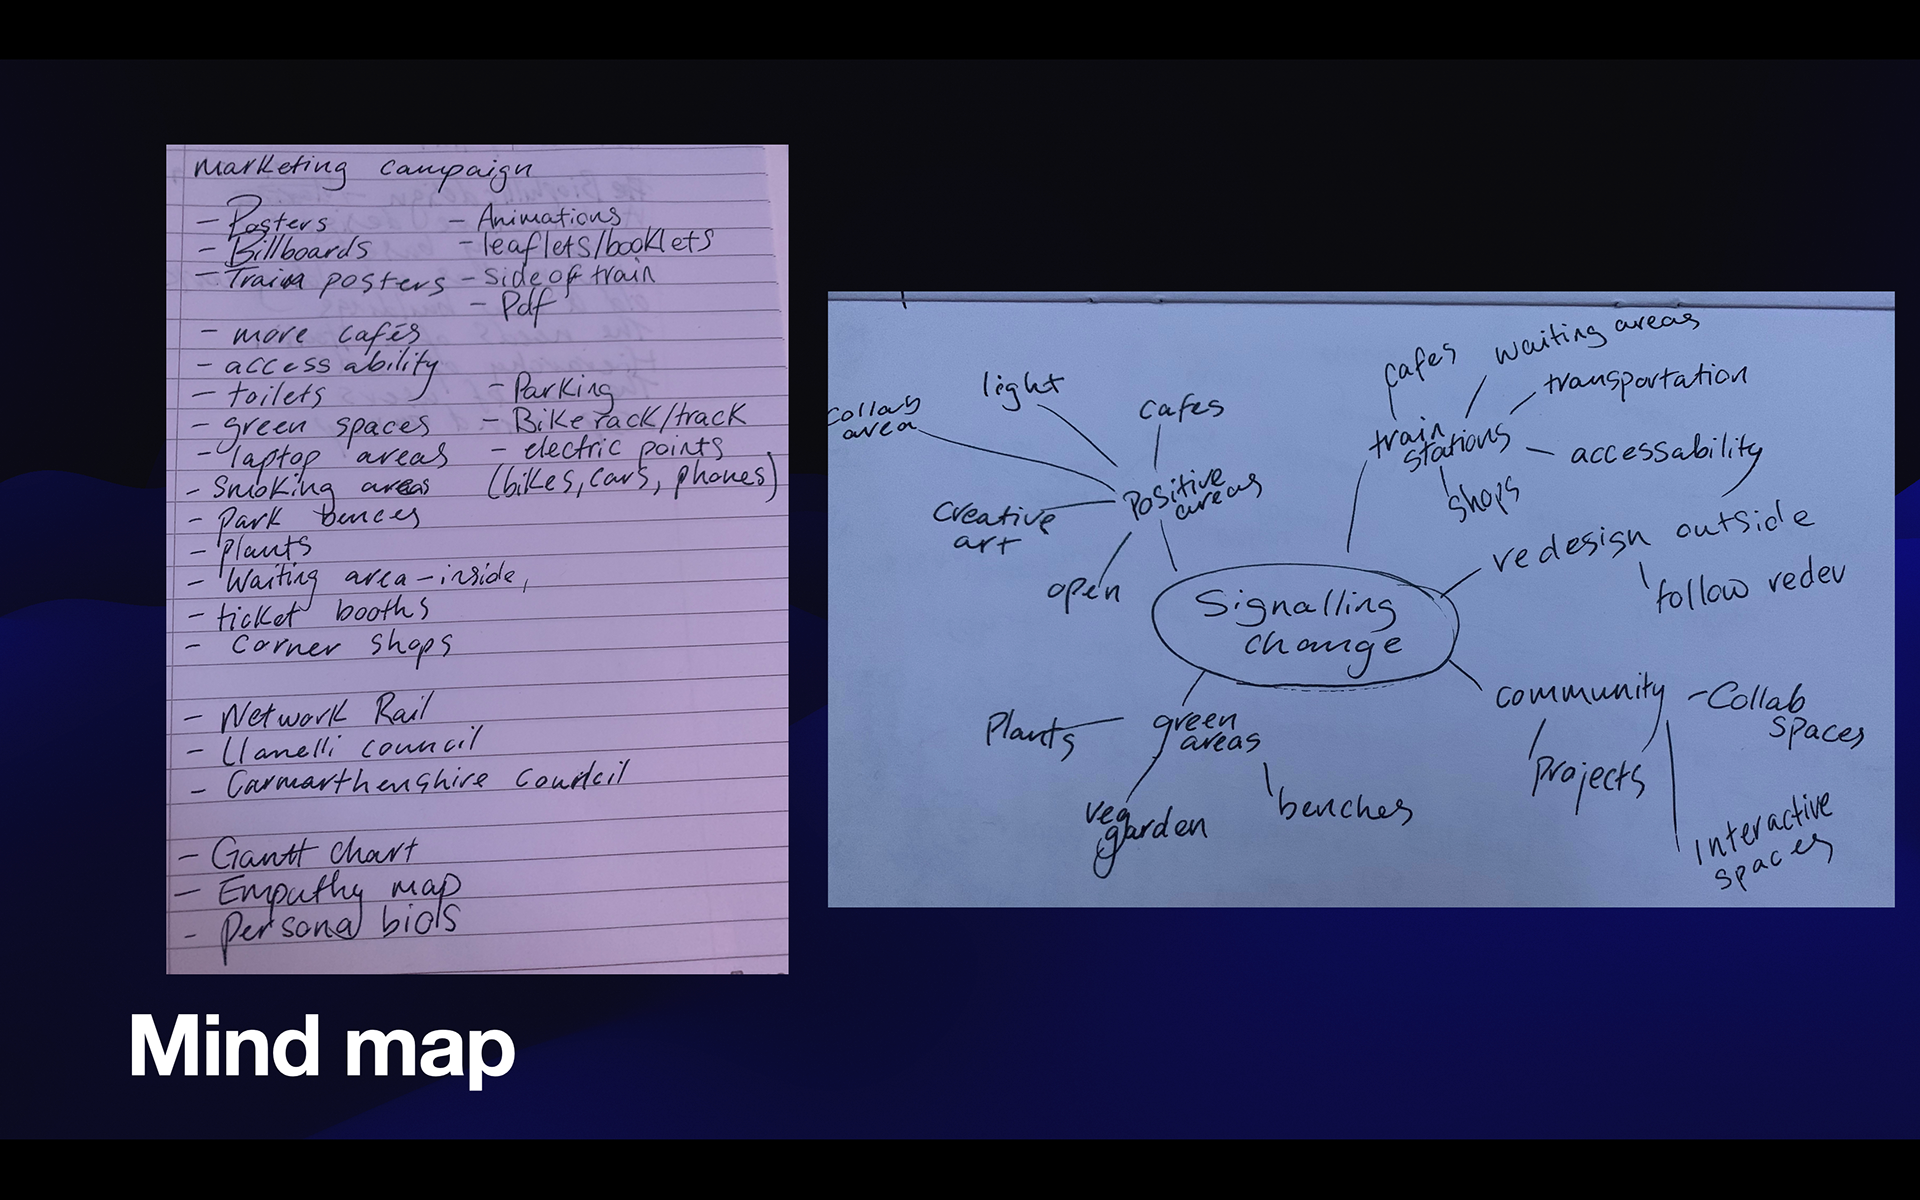 Marketing campaign
- Posters
- Billboards
- Train posters
- Animations
- leaflets/booklets
- Side of train
- Pdf
- more cafés
- accessability
- toilets
- green spaces
- laptop areas
- Smoking areas
- park bences
- plants
- Waiting area - inside,
- ticket booths
- Corner shops
- Parking
- Bike rack/track
- electric points
(bikes, cars, phones)
- Network Rail
- Llanelli council
- Carmarthenshire council
- Gantt chart
- Empathy map
- personal biols
Signalling
change
Positive
areas
collab
area
light
cafes
creative
art
open
train
stations
cafes
waiting areas
transportation
accessability
shops
redesign outside
follow redev
community
- Collab
spaces
projects
interactive
spaces
green
areas
Plants
veg
garden
benches
Mind map